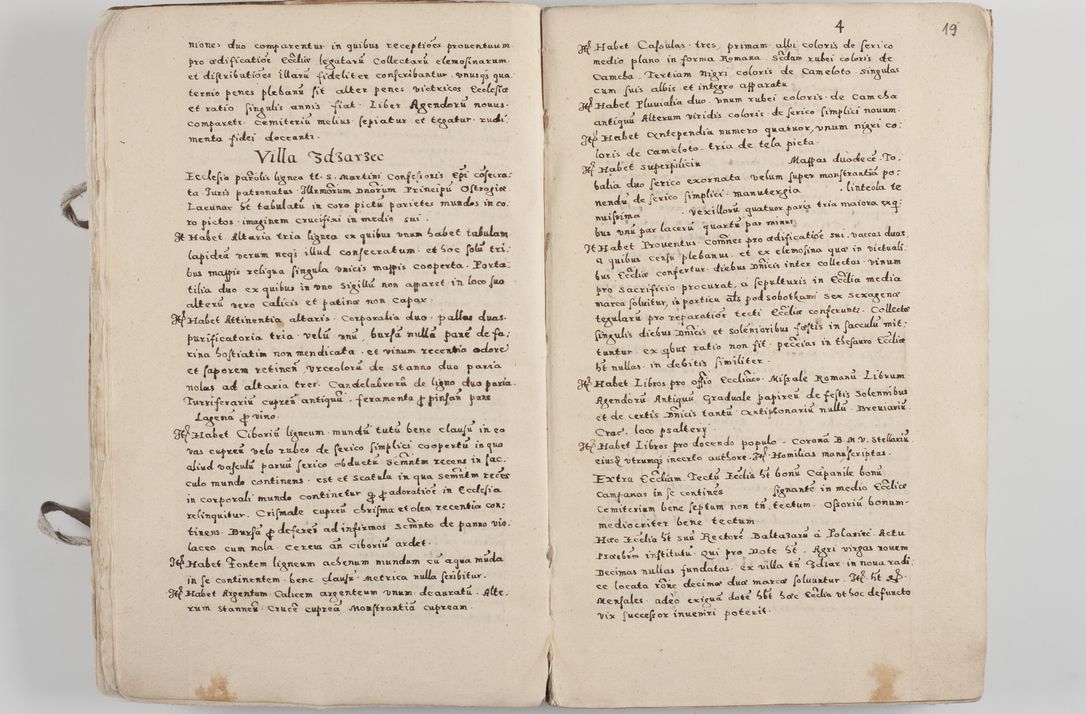 niones duo comparentur in quibus receptiões prouentuum
pro ædificatiõe Eccłiæ legatarũ Collectarũ elemosinarum
et distributiões illarũ fideliter conscribantur. vnusqꝫ qua
ternio penes plebanũ sit alter penes victricos Ecclesiæ
et ratio singulis annis fiat. Liber Agendorũ nouus.
comparetr. Cemiteriũ melius sepiatur et tegatur. rudi
menta fidei doceantr.
Villa Zdzarzec
Ecclesia parõlis lignea tt. S. Martini Confessoris Epi cõsecra-
ta Juris patronatus Illrmõrum Dnõrum Principũ Ostrogiæ
Lacunar ht tabulatũ in coro pictũ parietes mundos in co.
ro pictos. imaginem crucifixi in medio sui.
It Habet Altaria tria lignea ex quibus vnum habet tabulam
lapideã verum neqꝫ illud consecratum. et hoc solũ tri.
bus mappis reliqua singula vnicis mappis cooperta. Porta-
tilia duo ex quibus in vno sigillũ non apparet in loco suo
alterũ vero calicis et patinæ non capax.
Itẽ Habet Attinentia altaris. Corporalia duo. pallas duas.
purificatoria tria. velũ vnũ. bursã nullã. panẽ de fa-
rina hostiatim non mendicata. et vinum recentia odorẽ
et saporem retinen. Vrceolorũ de stanno duo paria
nolas ad altaria tres. Candelabrorũ de ligno duo paria.
Turriferariũ cupreũ antiquũ. feramenta ꝓ pinsan. pane
Lagenã ꝓ vino.
Itẽ Habet Ciboriũ ligneum mundũ tutũ bene clausũ in eo
vas cupreũ velo rubeo de serico simplici coopertũ in quo
aliud vasculũ paruũ serico obductũ Scmñtm recens in sac.
culo mundo continens. est et scatula in qua scmñtm recẽs
in corporali mundo continetur ꝓ adoratiõe in Ecclesia
relinquitur. Crismale cupreũ chrisma et olea recentia con:
tinens. Bursã ꝓ deferen ad infirmos Scmñto de panno vio.
laceo cum nola. cereus añ ciboriũ ardet.
Itẽ Habet Fontem ligneum achenum mundum cũ aqua mũda
in se continentem bene clausũ. metrica nulla scribitur.
Itẽ Habet Argentum. Calicem argenteum vnum deauratũ. Alte.
rum stanneũ. Crucẽ cupreã. Monstrantiã cupream
4
19
Itẽ Habet Casulas. tres primam albi coloris de serico
medio plano in forma Romana. Scdam rubei coloris de
Camcha. Tertiam nigri coloris de Cameloto. singulas
cum suis albis et integro apparatu
Itẽ Habet Pluuialia duo. vnum rubei coloris. de Camcha
antiquũ Alterum viridis coloris. de serico simplici nouum.
Itẽ Habet Antependia numero quatuor, vnum nigri co:
loris de Cameloto. tria de tela picta.
Itẽ Habet superpiliciũ Mappas duodecẽ. To.
balia duo serico exornata. velum super monstrantiã po:
nendũ de serico simplici. manutergia . linteola te
nuissima vexillorũ quatuor paria tria maiora ex q:
bus vnũ par lacerũ quartũ par minus.
It Habet Prouentus. cõmes pro ædificatiõe sui. vaccas duas,
a quibus censũ plebanus. et ex elemosina quæ in victuali.
bus Eccłiæ confertur. diebus Dnicis inter collectas. vinum
pro sacrificio procurat, a sepulturis in Eccłia media
marca soluitur, in porticu ats pod sobotkami sex sexagenæ
tegularũ pro reparatiõe tecti Eccłiæ conferuntr. Collectæ
singulis diebus Dnicis et solẽnioribus fæstis in sacculũ mit.
tuntur. ex qbus ratio non fit. peccias in thesauro Eccłiæ
ht nullas. in debitis similiter.
Itẽ Habet Libros pro offõ Eccłiaco. Missale Romanũ. Librum
Agendorũ Antiquũ Graduale papireũ de festis Solennibus
et de certis Dnicis tantũ. Antiphonariũ nullũ. Breuiariũ
Crac. loco psaltery.
Itẽ Habet Libros pro docendo populo. Coronã B.M.V. Stellariũ
eiusd utrumqꝫ incerto authore. Itẽ Homilias manuscriptas.
Extra Eccłiam. Tectũ Eccłia ht bonũ Cãpanile bonũ
Campanas in se continẽs Signante in medio Eccłiæ
Cemiterium bene septum non tñ. tectum. Ossoriũ bonum.
mediocriter bene tectum.
Hæc Eccłia ht suũ Rectorẽ Baltazarũ a Polaniec. Actu
Præsbrm institutũ. Qui pro Dote ht. Agri virgas nouem
Decimas nullas fundatas. ex villa tñ Zdiar in noua radi.
ce locata rõne decimæ duæ marcæ soluuntur. Itẽ ht
Mensales. adeo exiguã dotẽ ht hæc Eccłia vt hoc defuncto
vix successor inueniri poterit.